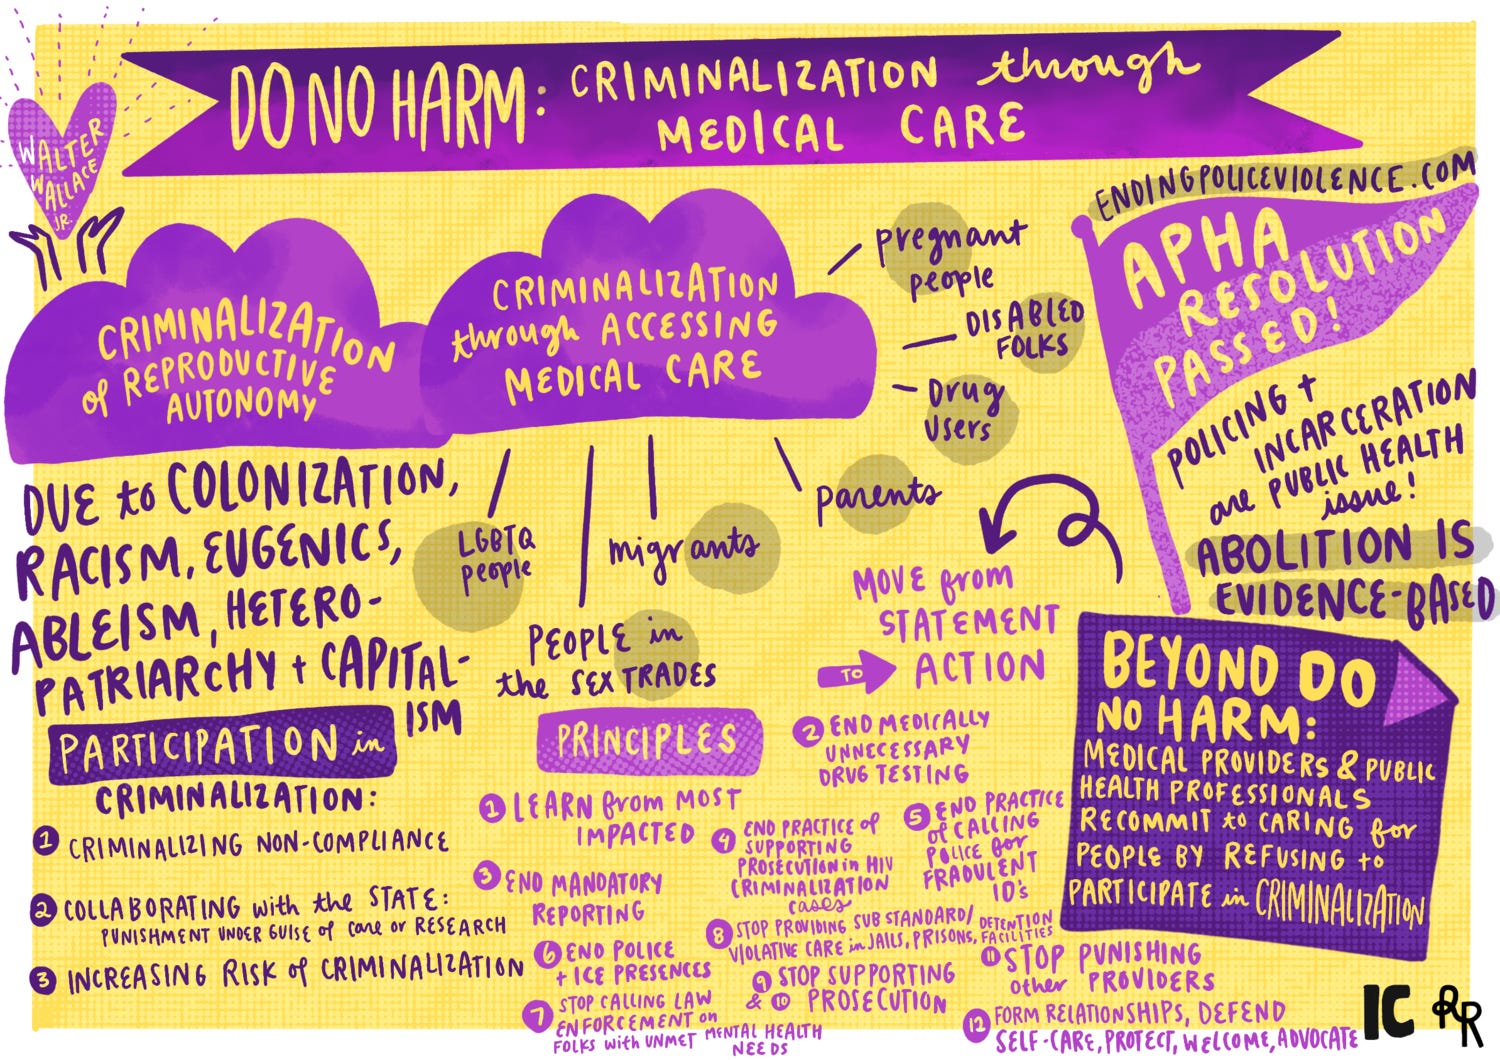 DO NO HARM: CRIMINALIZATION through
MEDICAL CARE
WALTER
WALLACE
JR.
ENDINGPOLICEVIOLENCE.COM
APHA
RESOLUTION
PASSED!
POLICING +
INCARCERATION
are PUBLIC HEALTH
issue!
ABOLITION IS
EVIDENCE-BASED
CRIMINALIZATION
of REPRODUCTIVE
AUTONOMY
DUE to COLONIZATION,
RACISM, EUGENICS,
ABLEISM, HETERO-
PATRIARCHY + CAPITAL-
ISM
CRIMINALIZATION
through ACCESSING
MEDICAL CARE
pregnant
people
DISABLED
FOLKS
Drug
users
parents
migrants
LGBTQ
people
PEOPLE in
the SEX TRADES
PARTICIPATION in
CRIMINALIZATION:
1 CRIMINALIZING NON-COMPLIANCE
2 COLLABORATING with the STATE:
PUNISHMENT UNDER GUISE of care or RESEARCH
3 INCREASING RISK of CRIMINALIZATION
MOVE from
STATEMENT
TO ACTION
PRINCIPLES
1 LEARN from MOST
IMPACTED
2 END MEDICALLY
UNNECESSARY
DRUG TESTING
3 END MANDATORY
REPORTING
4 END PRACTICE of
SUPPORTING
PROSECUTION in HIV
CRIMINALIZATION
cases
5 END PRACTICE
of CALLING
POLICE for
FRADULENT
ID's
6 END POLICE
+ ICE PRESENCES
7 STOP CALLING LAW
ENFORCEMENT on
FOLKS with UNMET MENTAL HEALTH
NEEDS
8 STOP PROVIDING SUB STANDARD/
VIOLATIVE CARE in JAILS, PRISONS, DETENTION
FACILITIES
9 STOP SUPPORTING
& 10 PROSECUTION
11 STOP PUNISHING
other PROVIDERS
12 FORM RELATIONSHIPS, DEFEND
SELF-CARE, PROTECT, WELCOME, ADVOCATE
BEYOND DO
NO HARM:
MEDICAL PROVIDERS & PUBLIC
HEALTH PROFESSIONALS
RECOMMIT to CARING for
PEOPLE BY REFUSING to
PARTICIPATE in CRIMINALIZATION
IC RR